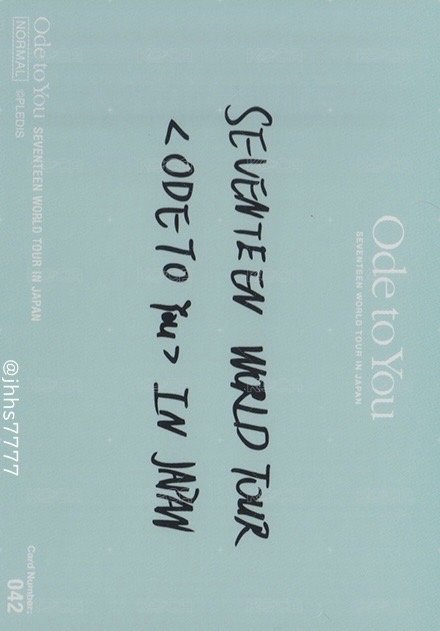 Ode to You
SEVENTEEN WORLD TOUR IN JAPAN
SEVENTEEN WORLD TOUR
<ODE TO You> IN JAPAN
Ode to You SEVENTEEN WORLD TOUR IN JAPAN
NORMAL ©PLEDIS
Card Number:
042
@jhhs7777